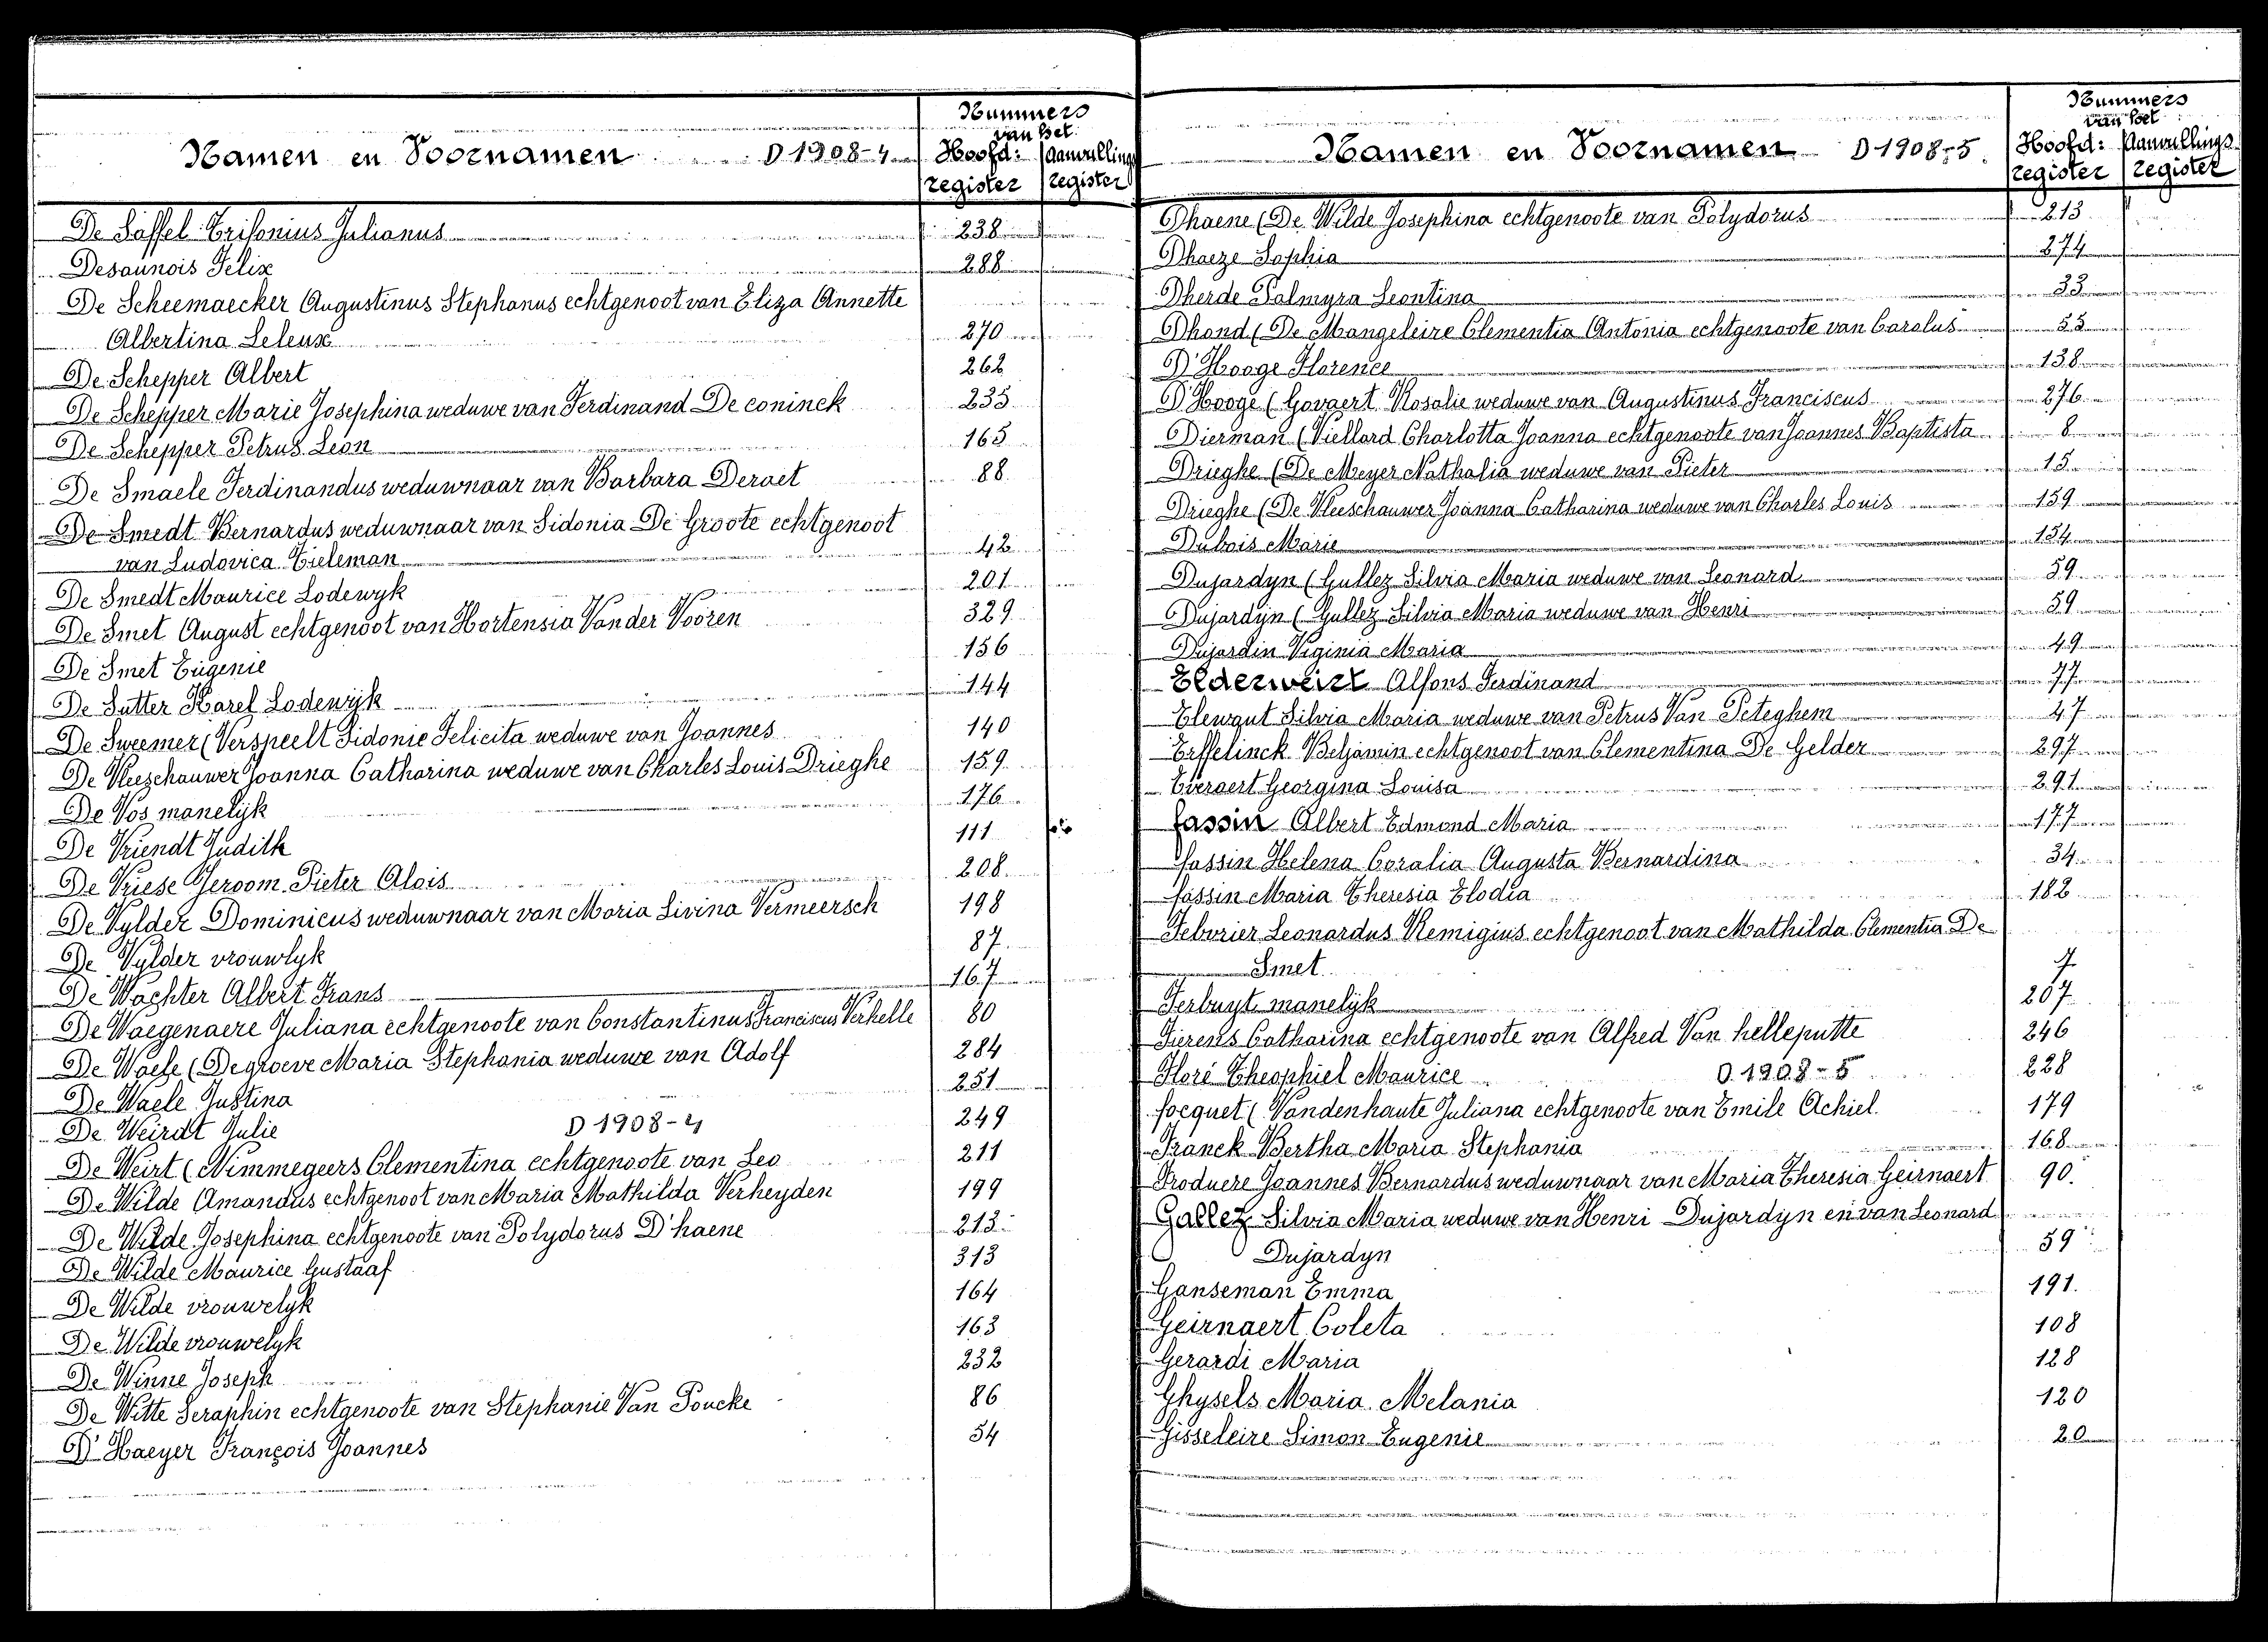 Nummers
van het
Namen en Voornamen D 1908-4 Hoofd: Aanvullings
register register
De Saffel Crisonius Julianus 238
Desaunois Felix 288
De Scheemaecker Augustinus Stephanus echtgenoot van Eliza Annette
Albertina Leleux 270
De Schepper Albert 262
De Schepper Marie Josephina weduwe van Ferdinand De coninck 235
De Schepper Petrus Leon 165
De Smaele Ferdinandus weduwnaar van Barbara Deraet 88
De Smedt Bernardus weduwnaar van Sidonia De Groote echtgenoot
van Ludovica Tieleman 42
De Smedt Maurice Lodewyk 201
De Smet August echtgenoot van Hortensia Vander Vooren 329
De Smet Eugenie 156
De Sutter Karel Lodewijk 144
De Sweemer (Verspeelt Sidonie Felicita weduwe van Joannes 140
De Vleeschauwer Joanna Catharina weduwe van Charles Louis Drieghe 159
De Vos manelijk 176
De Vriendt Judith 111
De Vriese Jeroom Pieter Alois 208
De Vylder Dominicus weduwnaar van Maria Livina Vermeersch 198
De Vylder vrouwlyk 87
De Wachter Albert Frans 167
De Waegenaere Juliana echtgenoote van Constantinus Franciscus Verhelle 80
De Waele (Degroeve Maria Stephania weduwe van Adolf 284
De Waele Justina 251
De Weirdt Julie D 1908-4 249
De Weirt (Nimmegeers Clementina echtgenoote van Leo 211
De Wilde Amandus echtgenoot van Maria Mathilda Verheyden 199
De Wilde Josephina echtgenoote van Polydorus D'haene 213
De Wilde Maurice Gustaaf 313
De Wilde vrouwelyk 164
De Wilde vrouwelyk 163
De Winne Joseph 232
De Witte Seraphin echtgenoote van Stephanie Van Poucke 86
D'Haeyer François Joannes 54
Nummers
van het
Namen en Voornamen D 1908-5 Hoofd: Aanvullings
register register
Dhaene (De Wilde Josephina echtgenoote van Polydorus 213
Dhaeze Sophia 274
Dherde Palmyra Leontina 33
Dhond (De Mangeleire Clementia Antonia echtgenoote van Carolus 55
D'Hooge Florence 138
D'Hooge (Govaert Rosalie weduwe van Augustinus Franciscus 276
Dierman (Viellard Charlotta Joanna echtgenoote van Joannes Baptista 8
Drieghe (De Meyer Nathalia weduwe van Pieter 15
Drieghe (De Vleeschauwer Joanna Catharina weduwe van Charles Louis 159
Dubois Marie 154
Dujardyn (Gullez Silvia Maria weduwe van Leonard 59
Dujardyn (Gullez Silvia Maria weduwe van Henri 59
Dujardin Viginia Maria 49
Elderweirt Alfons Ferdinand 77
Elewaut Silvia Maria weduwe van Petrus Van Peteghem 47
Erffelinck Beljamin echtgenoot van Clementina De Gelder 297
Everaert Georgina Louisa 291
fassin Albert Edmond Maria 177
fassin Helena Coralia Augusta Bernardina 34
fassin Maria Theresia Elodia 182
Februrier Leonardus Remigius echtgenoot van Mathilda Clementia De
Smet 7
Ferbuyt manelijk 207
Fierens Catharina echtgenoote van Alfred Van helleputte 246
Floré Theophiel Maurice D 1908-5 228
focquet (Vandenhaute Juliana echtgenoote van Emile Achiel 179
Franck Bertha Maria Stephania 168
Froduere Joannes Bernardus weduwnaar van Maria Theresia Geirnaert 90
Gallez Silvia Maria weduwe van Henri Dujardyn en van Leonard
Dujardyn 59
Ganseman Emma 191
Geirnaert Coleta 108
Gerardi Maria 128
Ghysels Maria Melania 120
Gisseleire Simon Eugenie 20